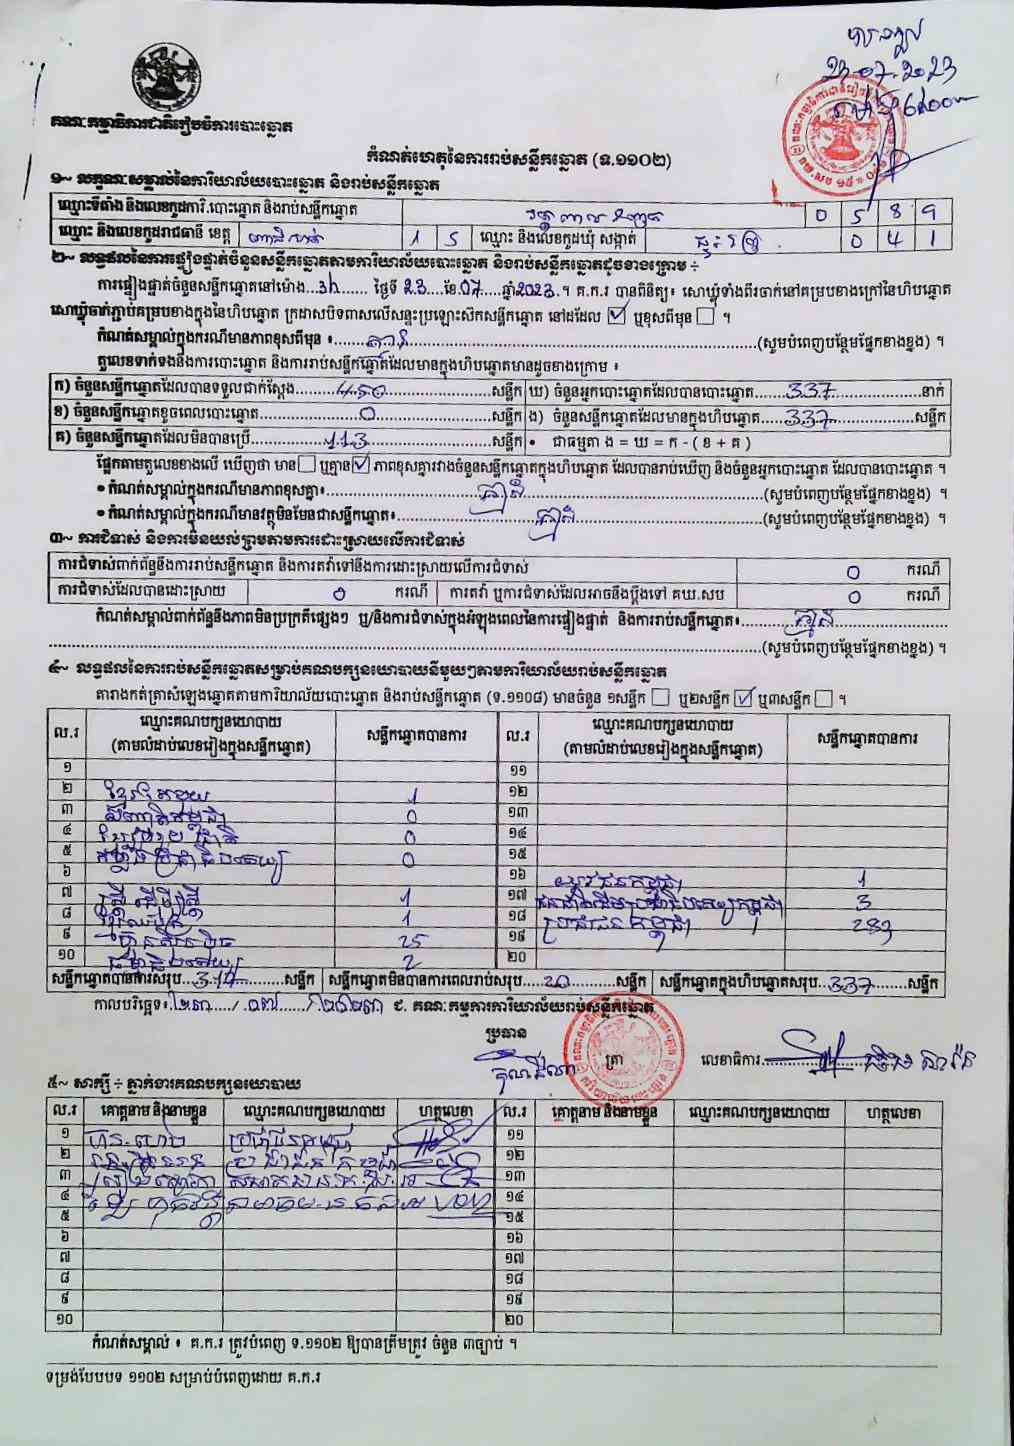 23-07-2023
គណៈកម្មាធិការជាតិរៀបចំការបោះឆ្នោត
កំណត់ហេតុនៃការរាប់សន្លឹកឆ្នោត (ទ.១១០២)
១~ លក្ខណៈសម្គាល់នៃការិយាល័យបោះឆ្នោត និងរាប់សន្លឹកឆ្នោត
ឈ្មោះទីតាំង និងលេខកូដការិ.បោះឆ្នោត និងរាប់សន្លឹកឆ្នោត 0 5 8 9
ឈ្មោះ និងលេខកូដរាជធានី ខេត្ត ពោធិ៍សាត់ 1 5 ឈ្មោះ និងលេខកូដឃុំ សង្កាត់ 0 4 1
២~ លទ្ធផលនៃការផ្ទៀងផ្ទាត់ចំនួនសន្លឹកឆ្នោតតាមការិយាល័យបោះឆ្នោត និងរាប់សន្លឹកឆ្នោតដូចខាងក្រោម ÷
ការផ្ទៀងផ្ទាត់ចំនួនសន្លឹកឆ្នោតនៅម៉ោង 3h ថ្ងៃទី 23 ខែ 07 ឆ្នាំ 2023 ។ គ.ក.រ បានពិនិត្យ៖ សោឃ្លុំទាំងពីរចាក់នៅគម្របខាងក្រៅនៃហិបឆ្នោត
សោឃ្លុំចាក់ភ្ជាប់គម្របខាងក្នុងនៃហិបឆ្នោត ក្រដាសបិទពាសលើសន្ទះប្រឡោះសឹកសន្លឹកឆ្នោត នៅដដែល ☑ ឬខុសពីមុន ☐ ។
កំណត់សម្គាល់ក្នុងករណីមានភាពខុសពីមុន ៖ គ្មាន (សូមបំពេញបន្ថែមផ្នែកខាងខ្នង) ។
តួលេខទាក់ទងនឹងការបោះឆ្នោត និងការរាប់សន្លឹកឆ្នោតដែលមានក្នុងហិបឆ្នោតមានដូចខាងក្រោម ៖
ក) ចំនួនសន្លឹកឆ្នោតដែលបានទទួលជាក់ស្តែង 450 សន្លឹក ឃ) ចំនួនអ្នកបោះឆ្នោតដែលបានបោះឆ្នោត 337 នាក់
ខ) ចំនួនសន្លឹកឆ្នោតខូចពេលបោះឆ្នោត 0 សន្លឹក ង) ចំនួនសន្លឹកឆ្នោតដែលមានក្នុងហិបឆ្នោត 337 សន្លឹក
គ) ចំនួនសន្លឹកឆ្នោតដែលមិនបានប្រើ 113 សន្លឹក • ជាធម្មតា ង = ឃ = ក - ( ខ + គ )
ផ្អែកតាមតួលេខខាងលើ ឃើញថា មាន ☐ ឬគ្មាន ☑ ភាពខុសគ្នារវាងចំនួនសន្លឹកឆ្នោតក្នុងហិបឆ្នោត ដែលបានរាប់ឃើញ និងចំនួនអ្នកបោះឆ្នោត ដែលបានបោះឆ្នោត ។
• កំណត់សម្គាល់ក្នុងករណីមានភាពខុសគ្នា៖ គ្មាន (សូមបំពេញបន្ថែមផ្នែកខាងខ្នង) ។
• កំណត់សម្គាល់ក្នុងករណីមានវត្ថុមិនមែនជាសន្លឹកឆ្នោត៖ គ្មាន (សូមបំពេញបន្ថែមផ្នែកខាងខ្នង) ។
៣~ ការជំទាស់ និងការមិនយល់ព្រមតាមការដោះស្រាយលើការជំទាស់
ការជំទាស់ពាក់ព័ន្ធនឹងការរាប់សន្លឹកឆ្នោត និងការតវ៉ាទៅនឹងការដោះស្រាយលើការជំទាស់ 0 ករណី
ការជំទាស់ដែលបានដោះស្រាយ 0 ករណី ការតវ៉ា ឬការជំទាស់ដែលអាចនឹងប្តឹងទៅ គឃ.សប 0 ករណី
កំណត់សម្គាល់ពាក់ព័ន្ធនឹងភាពមិនប្រក្រតីផ្សេងៗ ឬ/និងការជំទាស់ក្នុងអំឡុងពេលនៃការផ្ទៀងផ្ទាត់ និងការរាប់សន្លឹកឆ្នោត៖ គ្មាន
(សូមបំពេញបន្ថែមផ្នែកខាងខ្នង) ។
៤~ លទ្ធផលនៃការរាប់សន្លឹកឆ្នោតសម្រាប់គណបក្សនយោបាយនីមួយៗតាមការិយាល័យរាប់សន្លឹកឆ្នោត
តារាងកត់ត្រាសំឡេងឆ្នោតតាមការិយាល័យបោះឆ្នោត និងរាប់សន្លឹកឆ្នោត (ទ.១១០៨) មានចំនួន ១សន្លឹក ☐ ឬ២សន្លឹក ☑ ឬ៣សន្លឹក ☐ ។
ល.រ ឈ្មោះគណបក្សនយោបាយ (តាមលំដាប់លេខរៀងក្នុងសន្លឹកឆ្នោត) សន្លឹកឆ្នោតបានការ ល.រ ឈ្មោះគណបក្សនយោបាយ (តាមលំដាប់លេខរៀងក្នុងសន្លឹកឆ្នោត) សន្លឹកឆ្នោតបានការ
១ ១១
២ ខ្មែរតែមួយ 1 ១២
៣ 0 ១៣
៤ 0 ១៤
៥ 0 ១៥
៦ ១៦ យុវជនកម្ពុជា 1
៧ ស្ត្រីដើម្បីស្ត្រី 1 ១៧ 3
៨ 1 ១៨ ប្រជាជនកម្ពុជា 283
៩ 25 ១៩
១០ 2 ២០
សន្លឹកឆ្នោតបានការសរុប 317 សន្លឹក សន្លឹកឆ្នោតមិនបានការពេលរាប់សរុប 20 សន្លឹក សន្លឹកឆ្នោតក្នុងហិបឆ្នោតសរុប 337 សន្លឹក
កាលបរិច្ឆេទ៖ ២៣/០៧/២០២៣ ជ. គណៈកម្មការការិយាល័យរាប់សន្លឹកឆ្នោត
ប្រធាន
ត្រា លេខាធិការ
៥~ សាក្សី ÷ ភ្នាក់ងារគណបក្សនយោបាយ
ល.រ គោត្តនាម និងនាមខ្លួន ឈ្មោះគណបក្សនយោបាយ ហត្ថលេខា ល.រ គោត្តនាម និងនាមខ្លួន ឈ្មោះគណបក្សនយោបាយ ហត្ថលេខា
១ ប្រជាជនកម្ពុជា ១១
២ ប្រជាជនកម្ពុជា ១២
៣ ១៣
៤ ១៤
៥ ១៥
៦ ១៦
៧ ១៧
៨ ១៨
៩ ១៩
១០ ២០
កំណត់សម្គាល់ ៖ គ.ក.រ ត្រូវបំពេញ ទ.១១០២ ឱ្យបានត្រឹមត្រូវ ចំនួន ៣ច្បាប់ ។
ទម្រង់បែបបទ ១១០២ សម្រាប់បំពេញដោយ គ.ក.រ